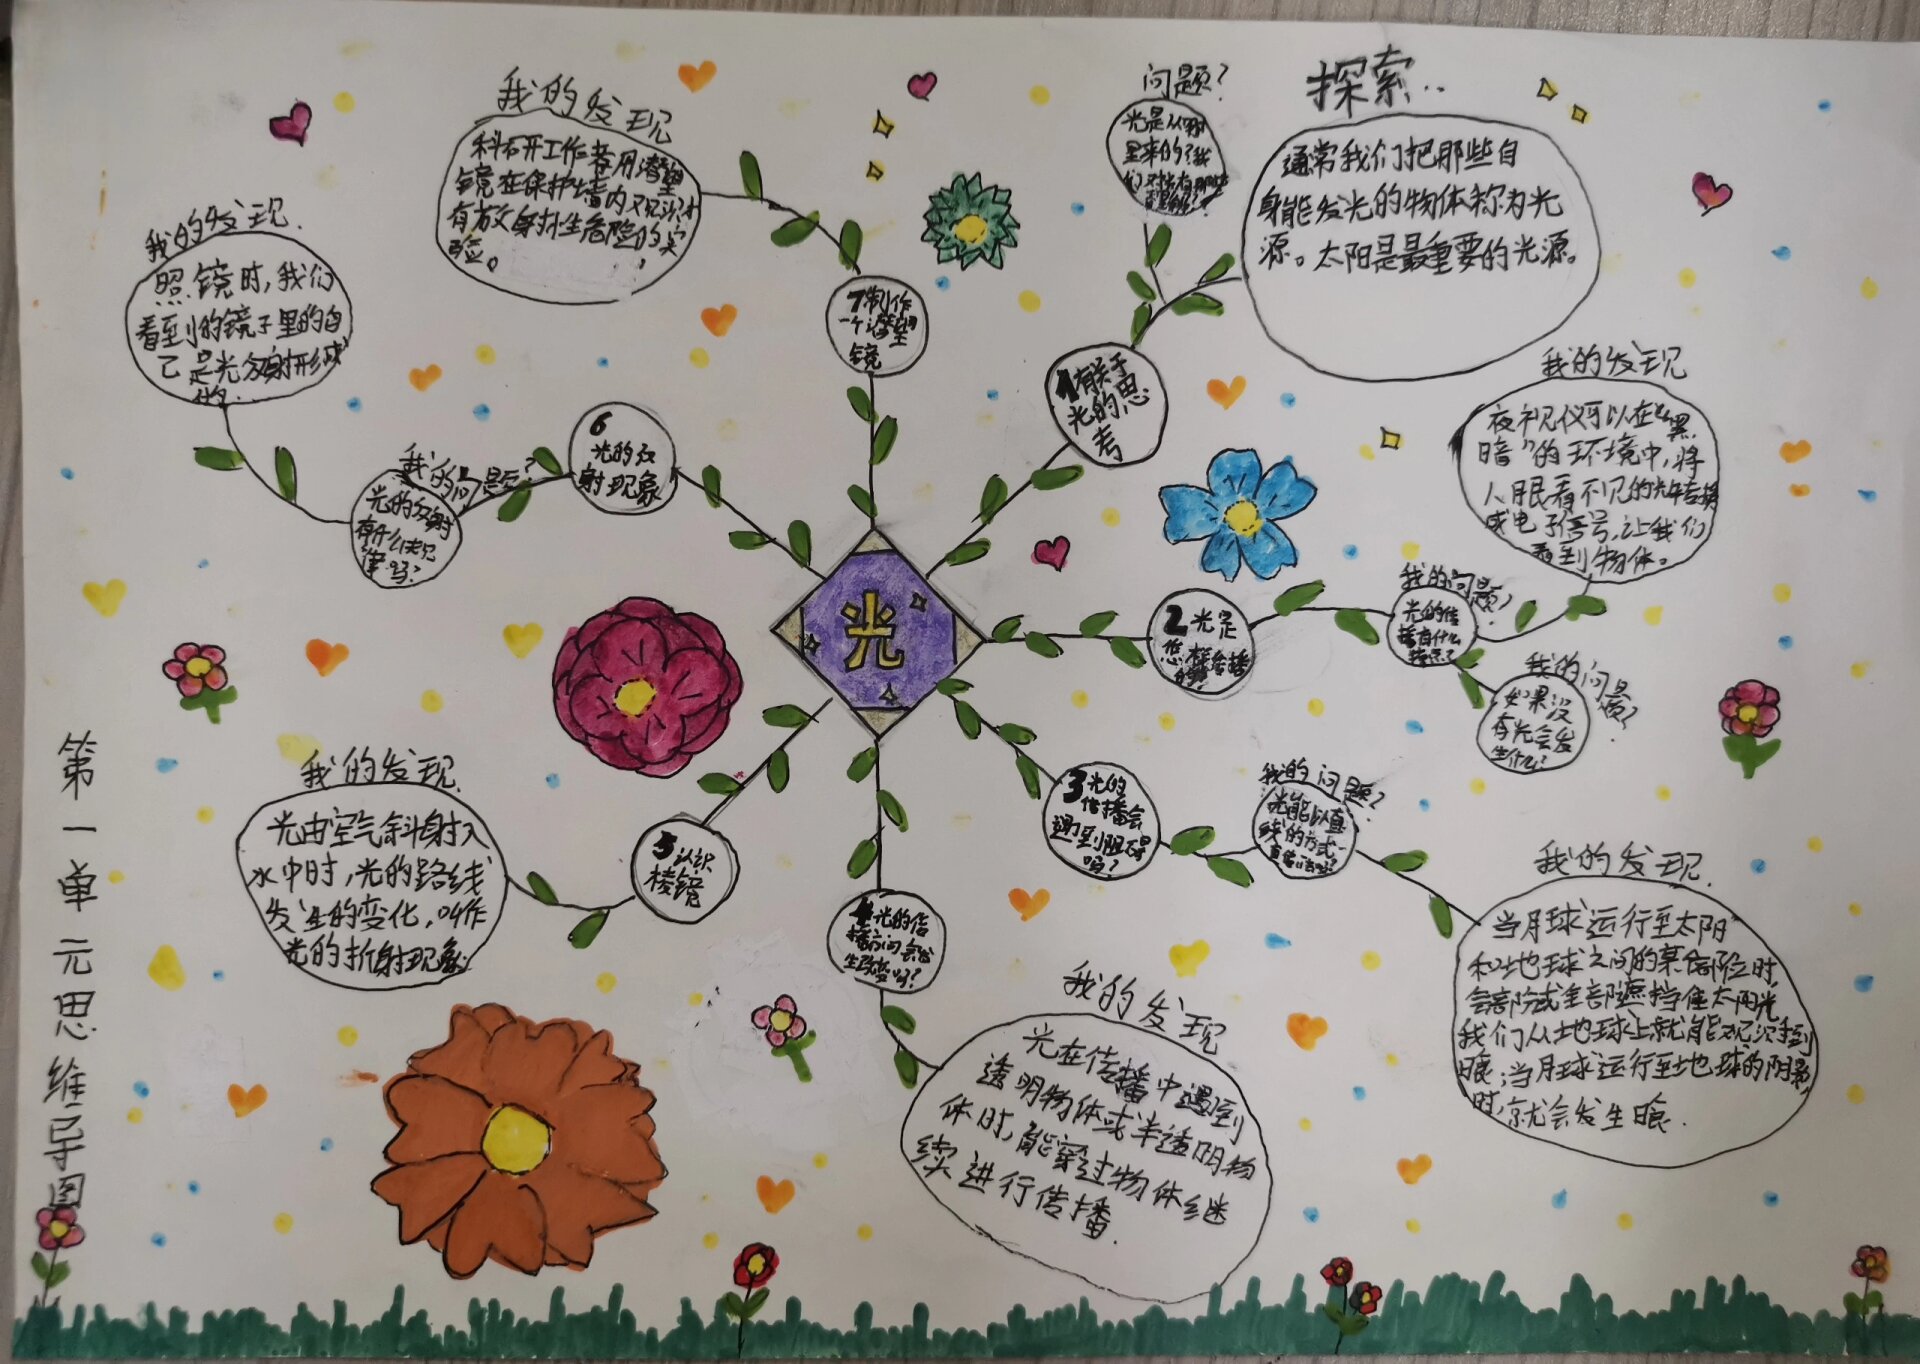 第一单元思维导图
光
问题?
光是从哪
里来的?我
探索..
通常我们把那些自
身能发光的物体称为光
源。太阳是最重要的光源。
1有关于
光的思
考
我的发现
夜视仪可以在“黑
暗”的环境中,将
人眼看不见的光转换
成电子信号,让我们
看到物体。
2光是
怎样传播
的?
我的问题?
光的传
播有什么
特点?
我的问题?
如果没
有光会发
生什么?
3光的
传播会
遇到阻碍
吗?
我的问题?
光能以直
线的方式一
直传
我的发现.
当月球运行至太阳
和地球之间的某个阶段时,
会部分或全部遮挡住太阳光
我们从地球上就能观测到
食;当月球运行至地球的阴影
时,就会发生食.
4光的传
播方向会发
生改变吗?
我的发现
光在传播中遇到
透明物体或半透明物
体时,能穿过物体继
续进行传播.
5认识
棱镜
我的发现.
光由空气斜射入
水中时,光的路线
发生的变化,叫作
光的折射现象
6
光的反
射现象
我的问题?
光的反射
有什么规
律吗?
我的发现.
照镜时,我们
看到的镜子里的自
己是光反射形成
的.
7制作
一个潜望
镜
我的发现
科研工作者用潜望
镜在保护墙内观测
有放射性危险的实
验。